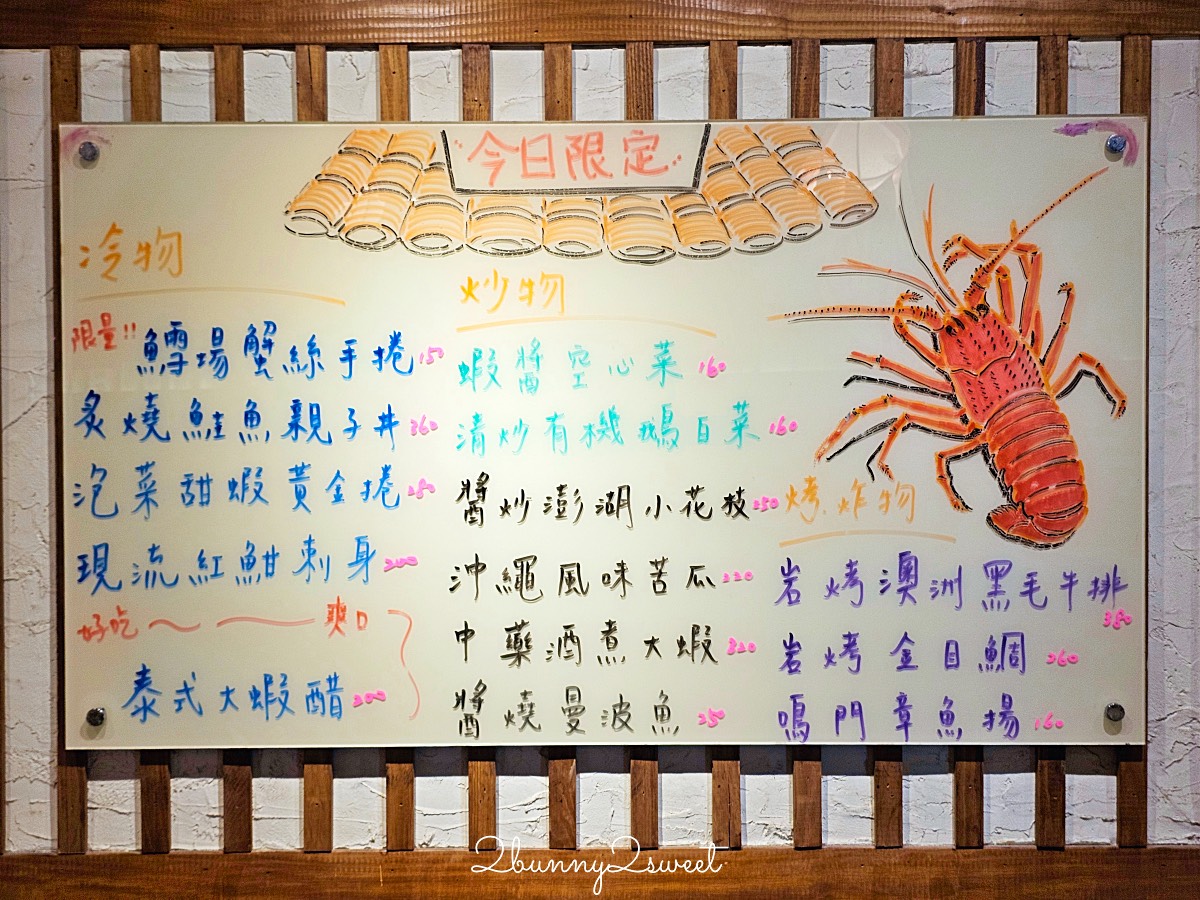 今日限定
冷物
限量!!
鱈場蟹絲手捲 150
炙燒鮭魚親子丼 360
泡菜甜蝦黃金捲
現流紅魽刺身 200
好吃 爽口
泰式大蝦醋 200
炒物
蝦醬空心菜 160
清炒有機鵝白菜 160
醬炒澎湖小花枝 250
沖繩風味苦瓜 220
中藥酒煮大蝦 320
醬燒曼波魚 250
烤.炸物
岩烤澳洲黑毛牛排
350
岩烤金目鯛 260
鳴門章魚揚 160
2bunny2sweet